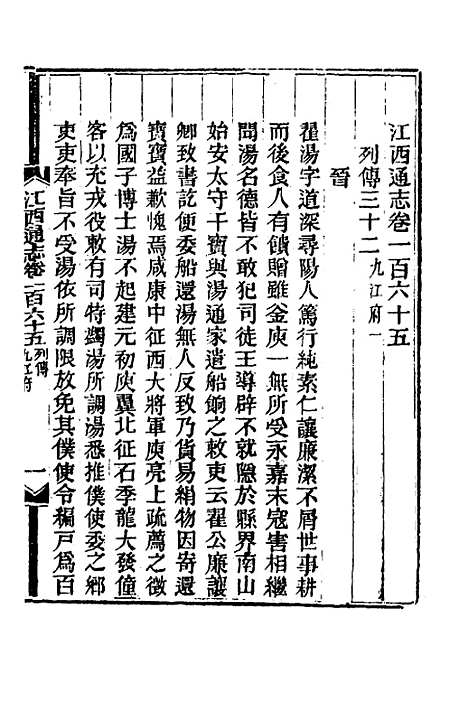 江西通志卷一百六十五
列傳三十二九江府一
晉
翟湯字道深尋陽人篤行純素仁讓廉潔不屑世事耕
而後食人有饋贈雖釜庾一無所受永嘉末寇害相繼
聞湯名德皆不敢犯司徒王導辟不就隱於縣界南山
始安太守干寶與湯通家遣船餉之敕吏云翟公廉讓
卿致書訖便委船還湯無人反致乃貨易絹物因寄還
寶寶益歉愧焉咸康中征西大將軍庾亮上疏薦之徵
爲國子博士湯不起建元初庾翼北征石季龍大發僮
客以充戎役敕有司特蠲湯所調湯悉推僕使委之鄉
吏吏奉旨不受湯依所調限放免其僕使令編戸爲百
江西通志卷一百六十五列傳九江府一